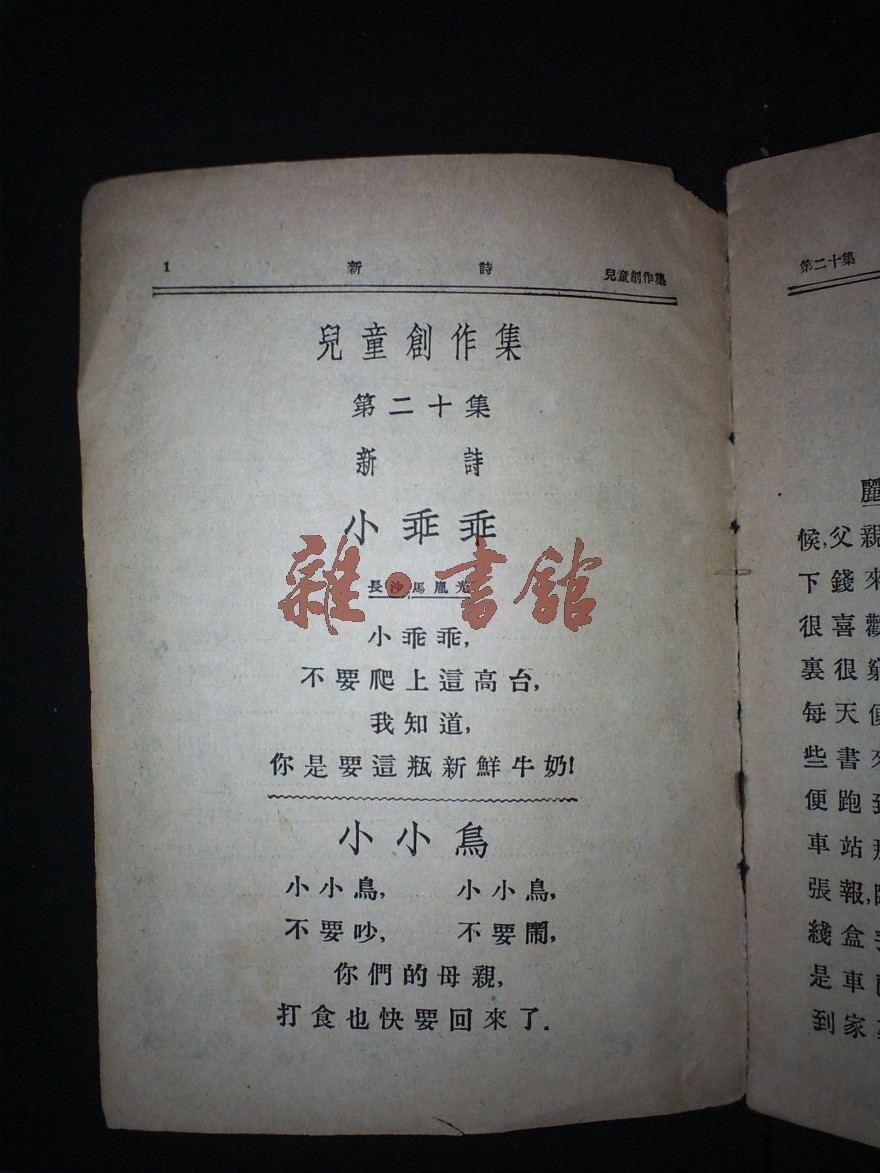 1 新 詩 兒童創作集
兒童創作集
第二十集
新 詩
小乖乖
長沙馬胤光
小乖乖,
不要爬上這高台,
我知道,
你是要這瓶新鮮牛奶!
小小鳥
小小鳥, 小小鳥,
不要吵, 不要鬧,
你們的母親,
打食也快要回來了.
雜·書館
第二十集
麗
候,父親
下錢來
很喜歡
裏很窮
每天便
些書來
便跑到
車站
張報,
綫盒
是車
到家